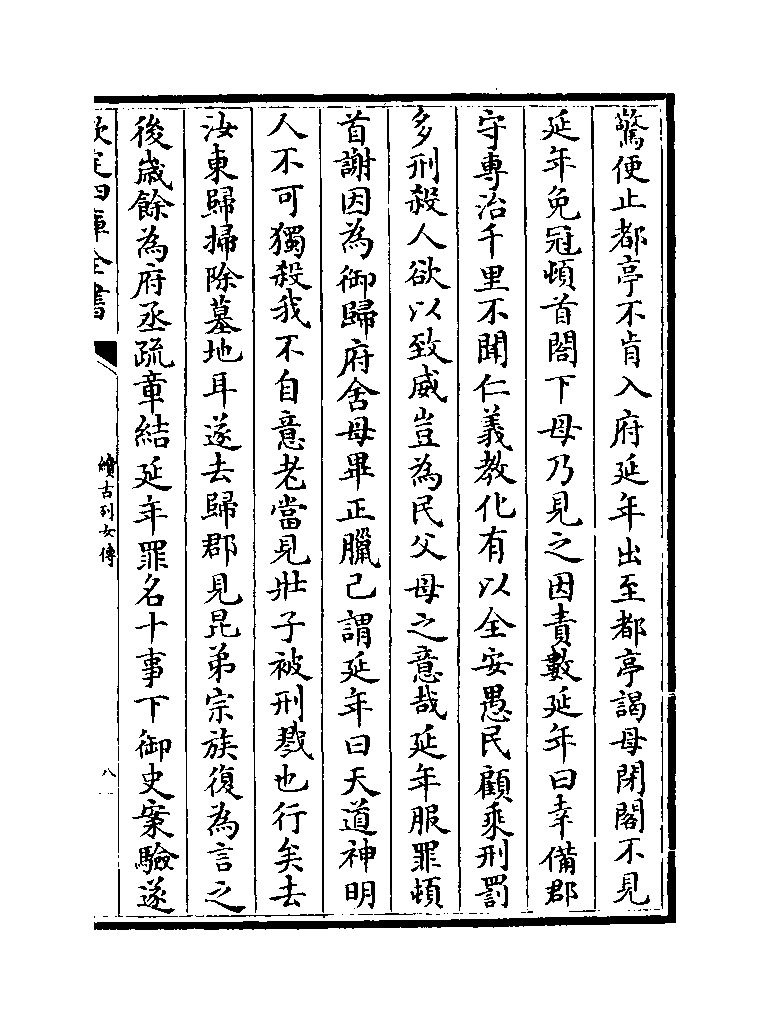 驚便止都亭不肯入府延年出至都亭謁母閉閣不見
延年免冠頓首閤下母乃見之因責數延年曰幸備郡
守專治千里不聞仁義教化有以全安愚民顧乘刑罰
多刑殺人欲以致威豈為民父母之意哉延年服罪頓
首謝因為御歸府舍母畢正臘已謂延年曰天道神明
人不可獨殺我不自意老當見壯子被刑戮也行矣去
汝東歸掃除墓地耳遂去歸郡見昆弟宗族復為言之
後歲餘為府丞疏章結延年罪名十事下御史案驗遂
欽定四庫全書
續古列女傳
八